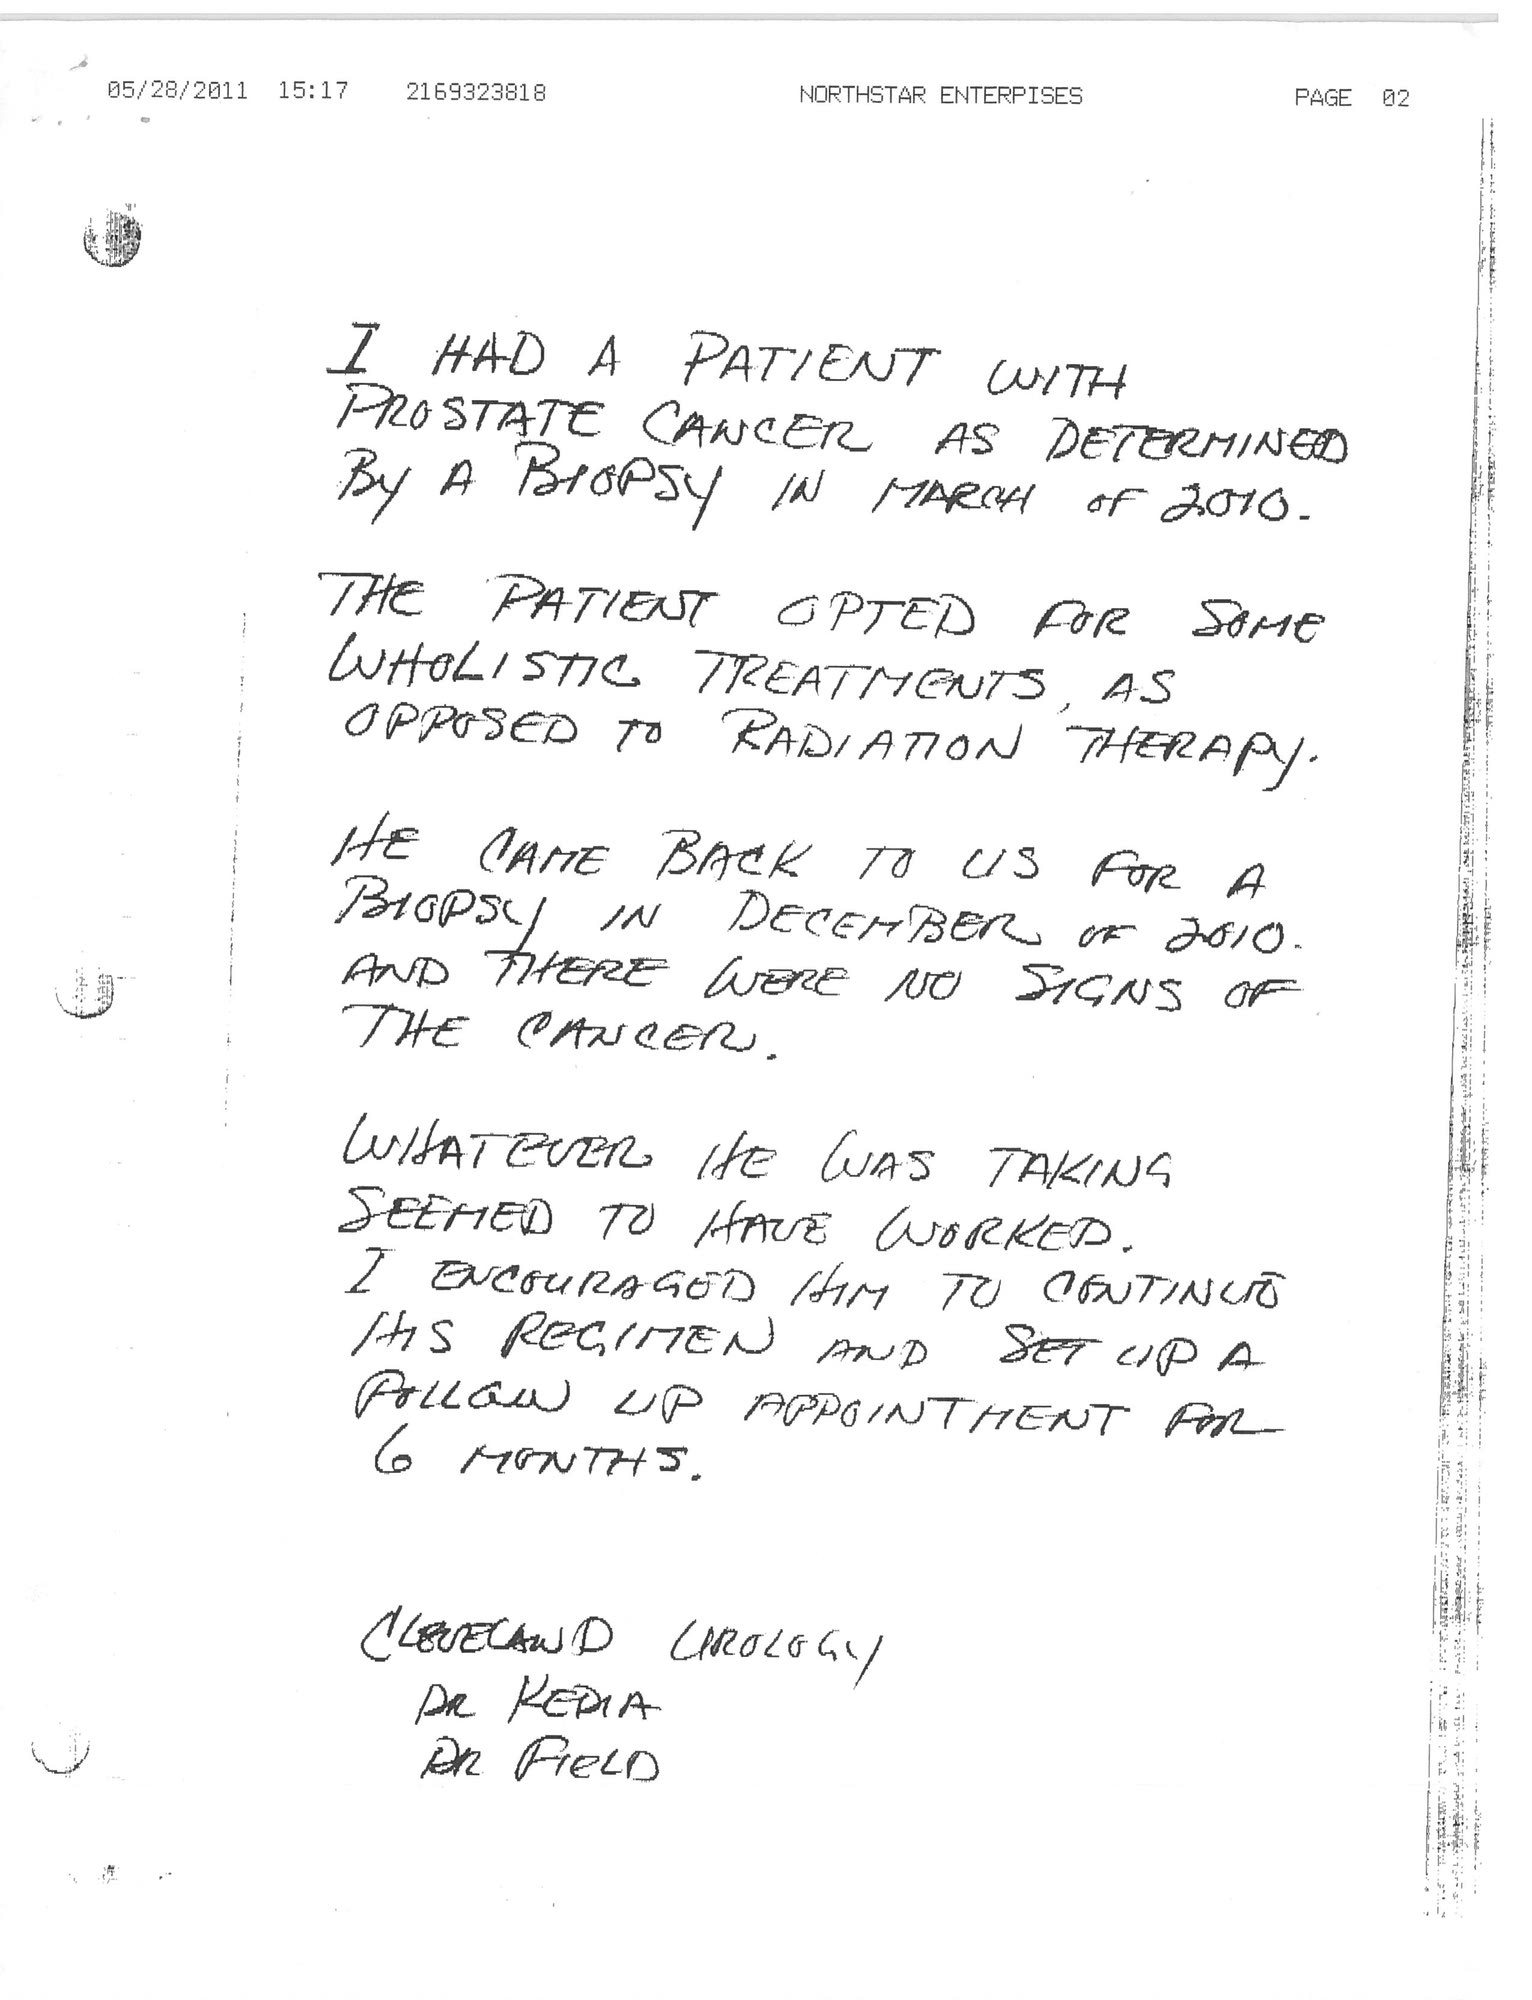 05/28/2011 15:17 2169323818 NORTHSTAR ENTERPISES PAGE 02
I HAD A PATIENT WITH
PROSTATE CANCER AS DETERMINED
BY A BIOPSY IN MARCH OF 2010.
THE PATIENT OPTED FOR SOME
WHOLISTIC TREATMENTS, AS
OPPOSED TO RADIATION THERAPY.
HE CAME BACK TO US FOR A
BIOPSY IN DECEMBER OF 2010.
AND THERE WERE NO SIGNS OF
THE CANCER.
WHATEVER HE WAS TAKING
SEEMED TO HAVE WORKED.
I ENCOURAGED HIM TO CONTINUE
HIS REGIMEN AND SET UP A
FOLLOW UP APPOINTMENT FOR
6 MONTHS.
CLEVELAND UROLOGY
DR KEDIA
DR FIELD